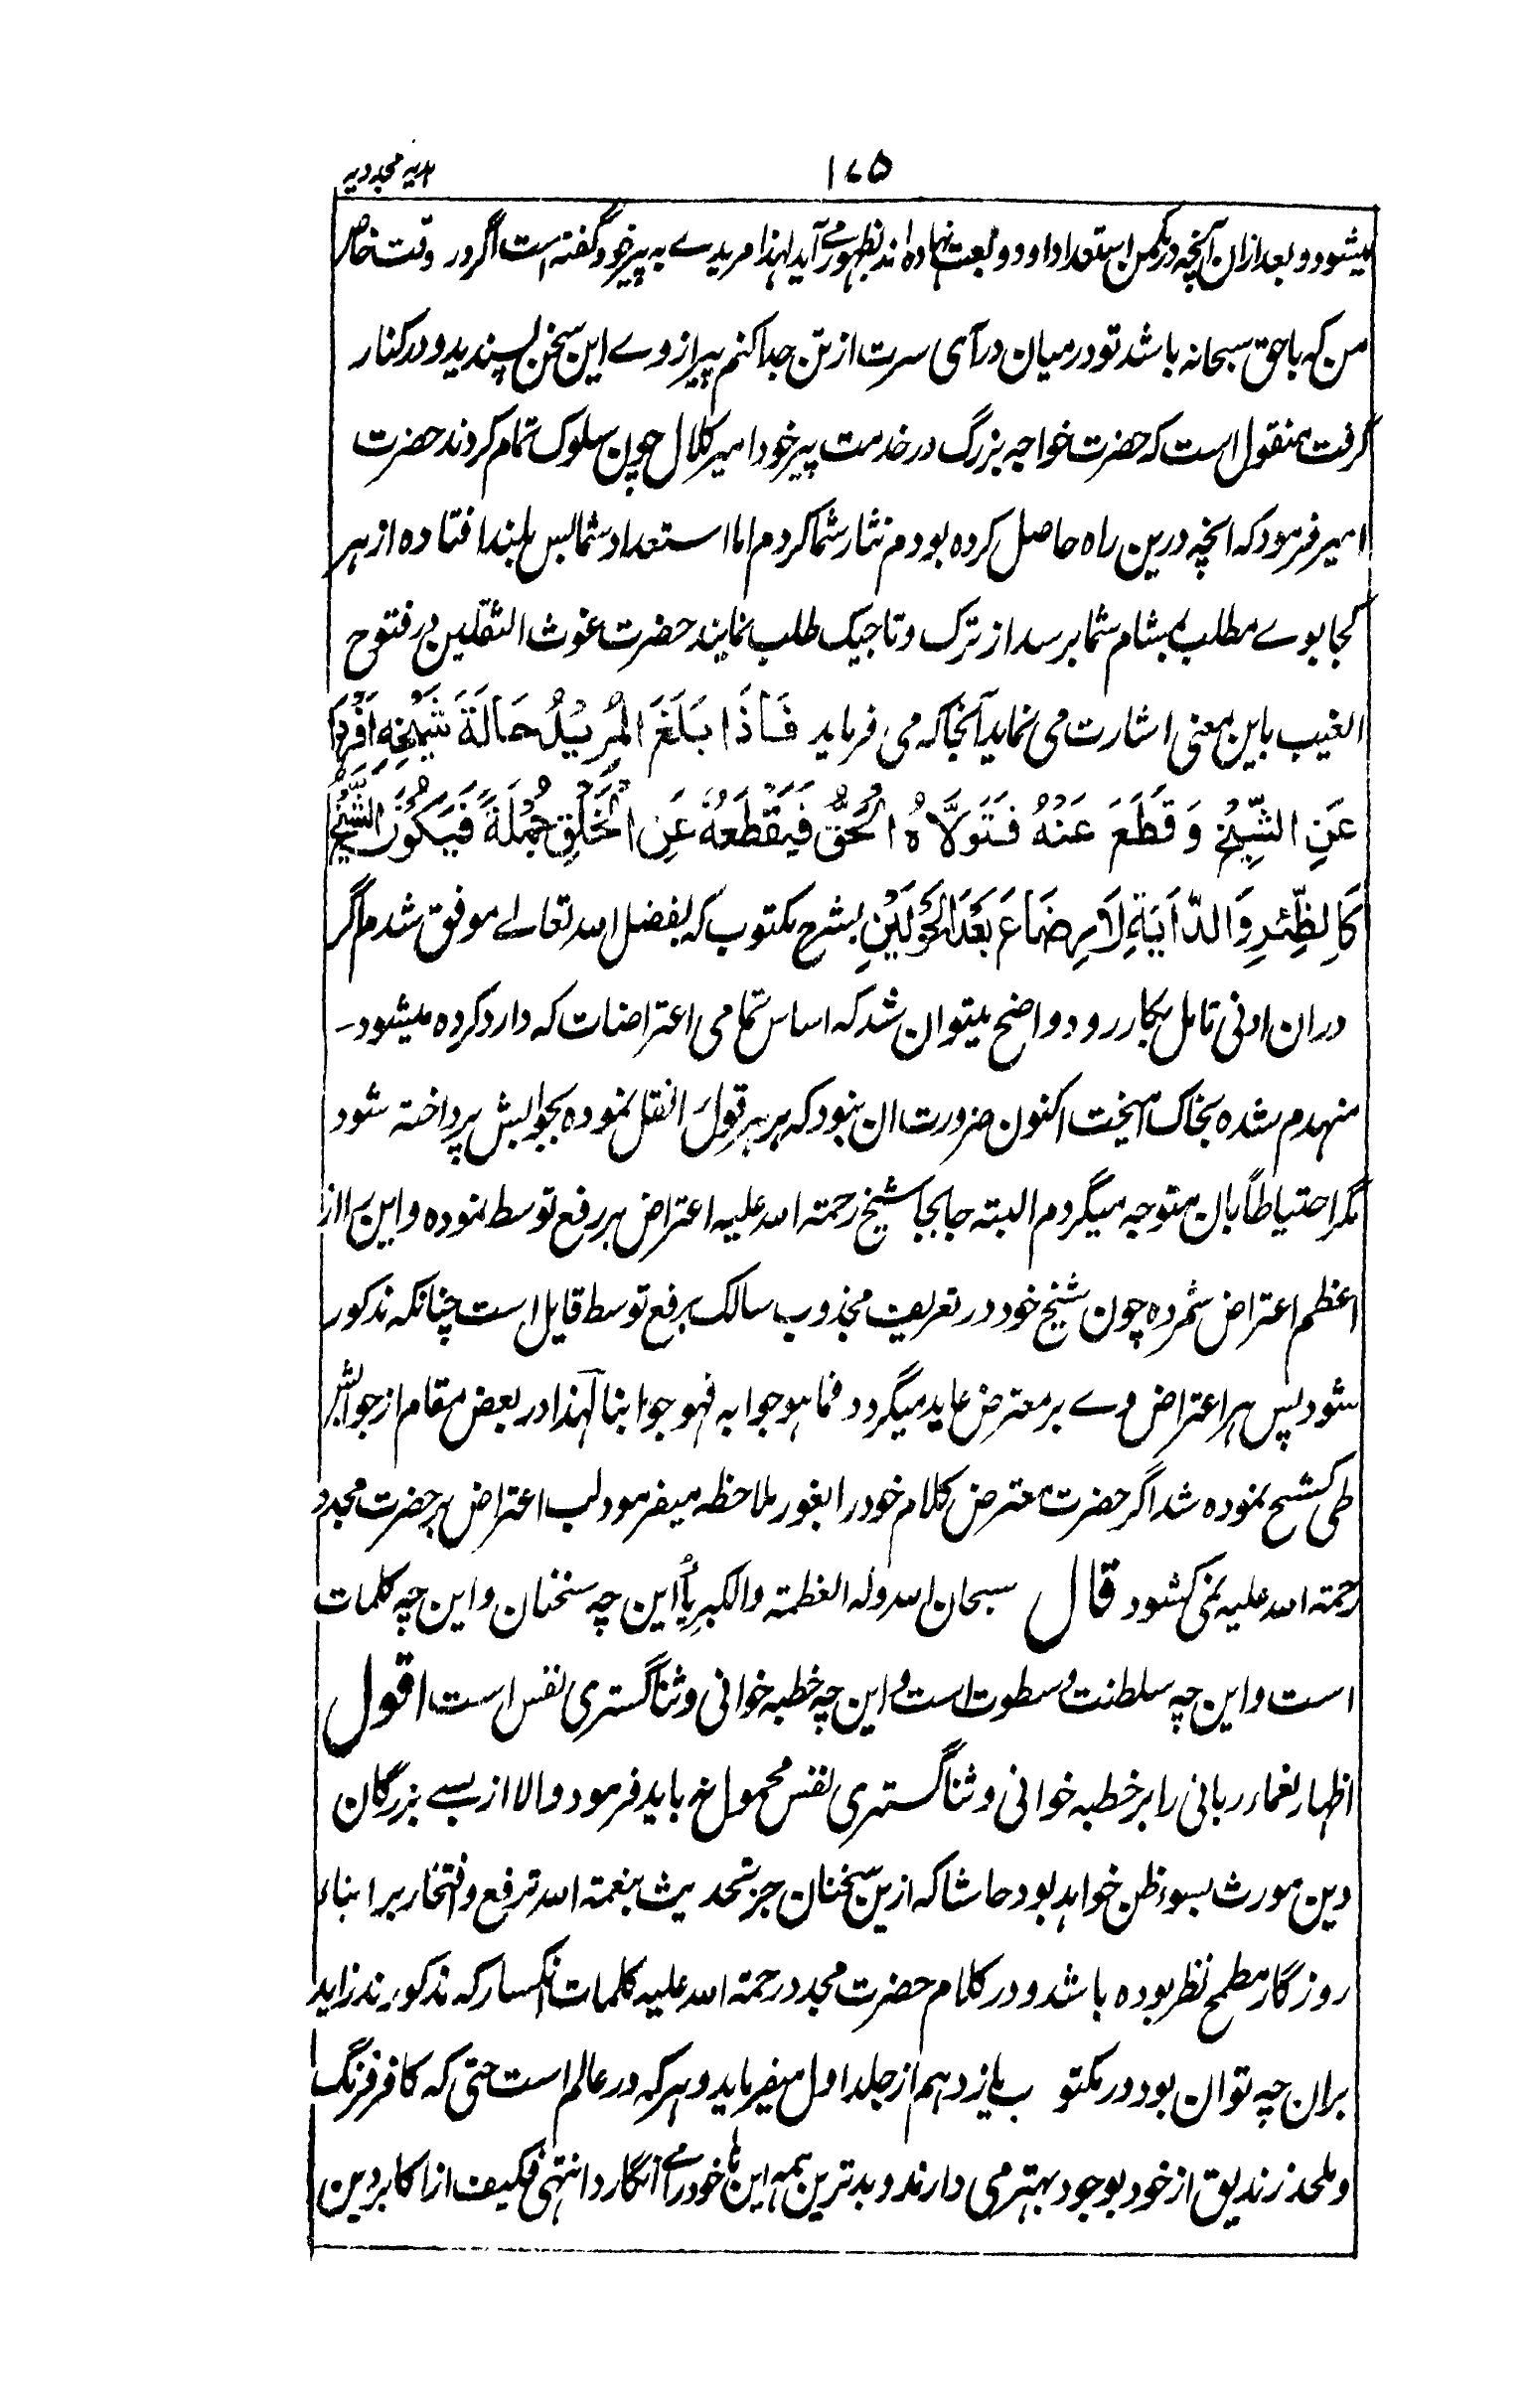 ۱۷۵
ہدیہ مجددیہ
میشود و بعد ازان آنچہ در مکمن استعداد او ودیعت نہادہ اند بظہور مے آید لہذا مریدے بہ پیر خود گفتہ است اگر در وقت خاص
من کہ با حق سبحانہ باشد تو درمیان در آی سرت از تن جدا کنم پیر از وے این سخن پسندید و در کنار
گرفت منقول است کہ حضرت خواجہ بزرگ در خدمت پیر خود امیر کلال چون سلوک تمام کردند حضرت
امیر فرمود کہ انچہ درین راہ حاصل کردہ بودم نثار شما کردم اما استعداد شما بس بلند افتادہ از ہر
کجا بوے مطلب بمشام شما برسد از ترک و تاجیک طلب نمایند حضرت غوث الثقلین در فتوح
الغیب باین معنی اشارت می نماید آنجا کہ می فرماید فَاِذَا بَلَغَ الْمُرِیْدُ حَالَۃَ شَیْخِہٖ اُفْرِدَ
عَنِ الشَّیْخِ وَ قُطِعَ عَنْہُ فَتَوَلَّاہُ الْحَقُّ فَیَقْطَعُہٗ عَنِ الْخَلْقِ جُمْلَۃً فَیَکُوْنُ الشَّیْخُ
کَالظِّئْرِ وَالدَّایَۃِ لَا رِضَاعَ بَعْدَ الْحَوْلَیْنِ بشرح مکتوب کہ بفضل اللہ تعالے موفق شدم اگر
دران ادنی تامل بکار رود واضح میتوان شد کہ اساس تمامی اعتراضات کہ وارد کردہ میشود۔
منہدم شدہ بخاک آمیخت اکنون ضرورت ان نبود کہ ہر ہر قول را نقل نمودہ بجوابش پرداختہ شود
مگر احتیاطاً بان متوجہ میگردم البتہ جابجا شیخ رحمتہ اللہ علیہ اعتراض بر رفع توسط نمودہ و این را از
اعظم اعتراض شمردہ چون شیخ خود در تعریف مجذوب سالک برفع توسط قایل است چنانکہ مذکور
شود پس ہر اعتراض وے بر معترض عاید میگردد فما ہو جوابہ فہو جوابنا لہذا در بعض مقام از جوابش
طی کشح نمودہ شد اگر حضرت معترض کلام خود را بغور ملاحظہ میفرمود لب اعتراض بر حضرت مجدد
رحمتہ اللہ علیہ نمی کشود قال سبحان اللہ ولہ العظمتہ والکبریآء این چہ سخنان و این چہ کلمات
است و این چہ سلطنت و سطوت است و این چہ خطبہ خوانی و ثنا گستری نفس است اقول
اظہار نعماء ربانی را بر خطبہ خوانی و ثنا گستری نفس محمول نہ باید فرمود والا از بسے بزرگان
دین مورث بسوء ظن خواہد بود حاشا کہ ازین سخنان جز تحدیث بنعمتہ اللہ ترفع و افتخار بر ابناء
روزگار مطمح نظر بودہ باشد و در کلام حضرت مجدد رحمتہ اللہ علیہ کلمات انکسار کہ مذکورند زاید
بران چہ توان بود در مکتوب یازدہم از جلد اول میفرماید و ہر کہ در عالم است حتی کہ کافر فرنگ
و ملحد زندیق از خود بوجوہ بہتر می دارند و بدترین ہمہ اینہا خود را مے انگارد انتہی فکیف از اکابر دین